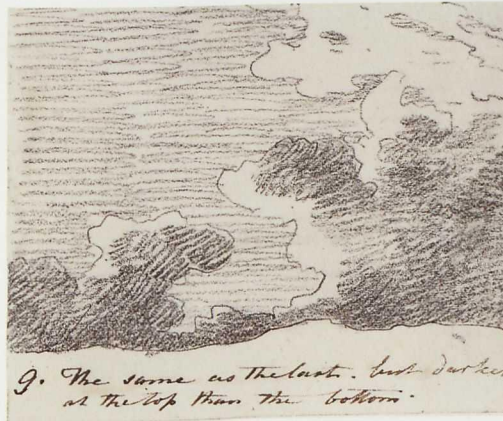 9. The same as the last. but darker
at the top than the bottom.